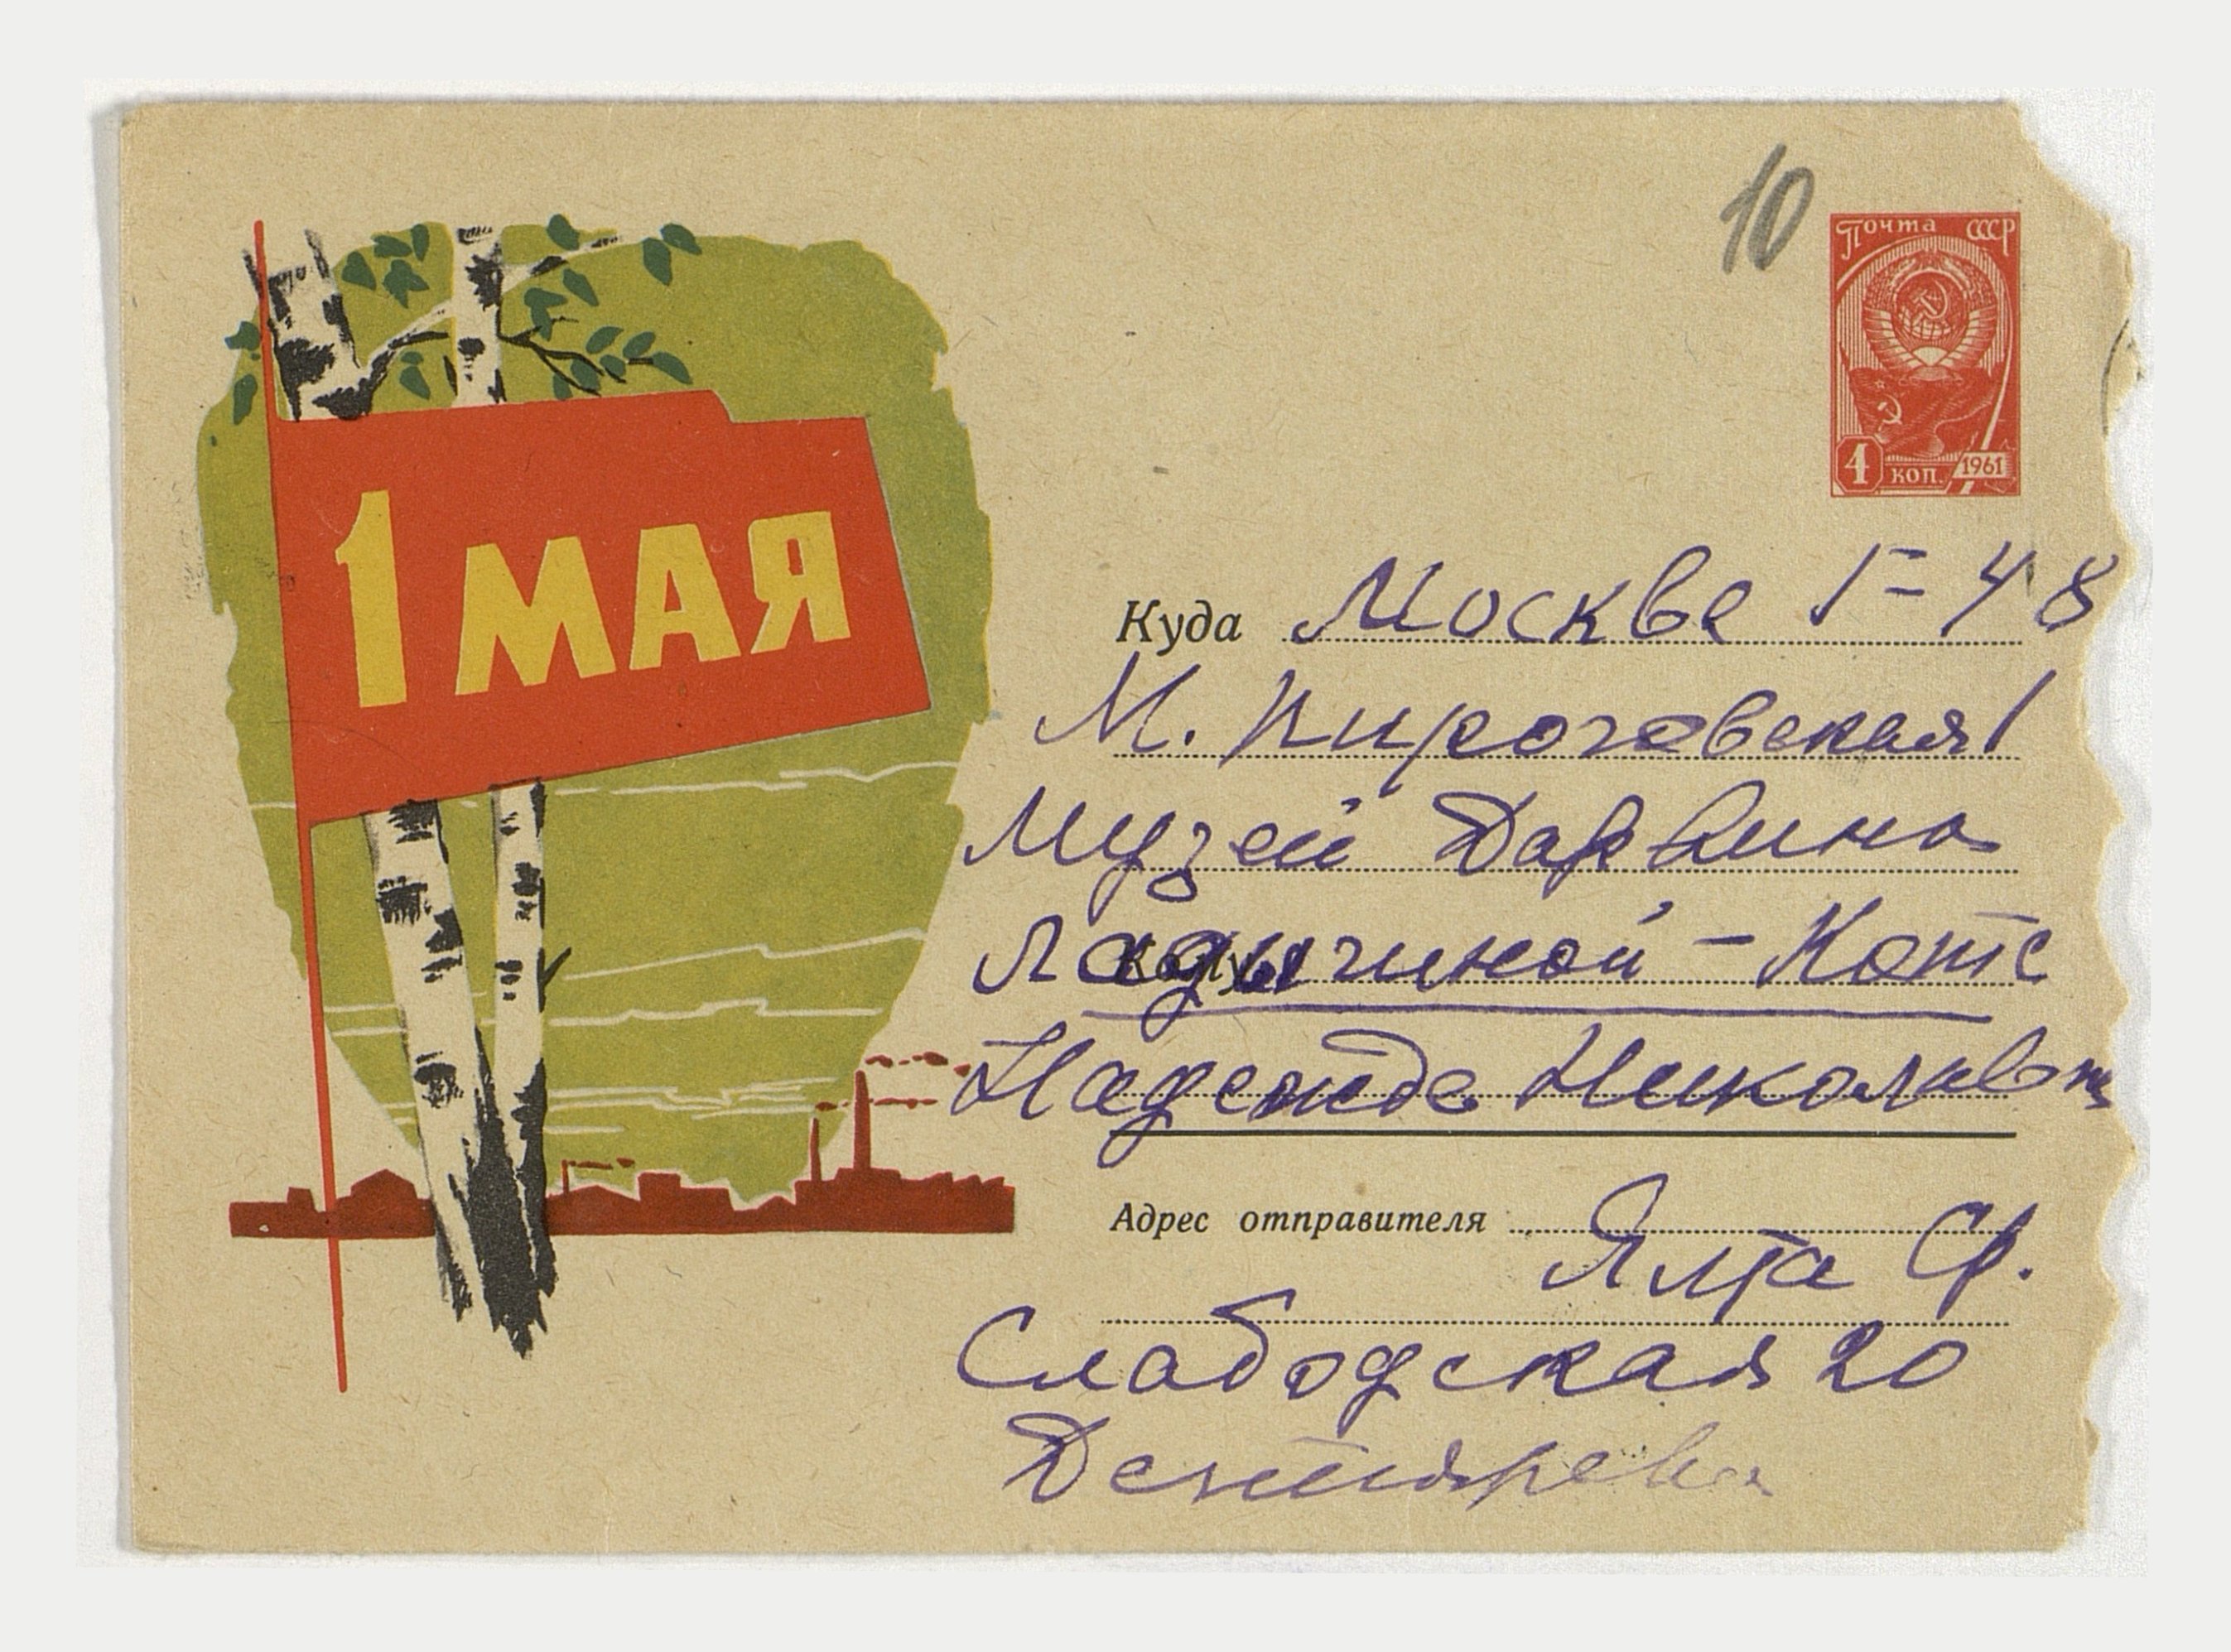 10
Почта СССР
4 коп. 1961
1 МАЯ
Куда Москва Г-48
М. Пироговская 1
Музей Дарвина
Кому Ладыгиной-Котс
Надежде Николаевне
Адрес отправителя
Ялта
Слабодская 20
Дектярева